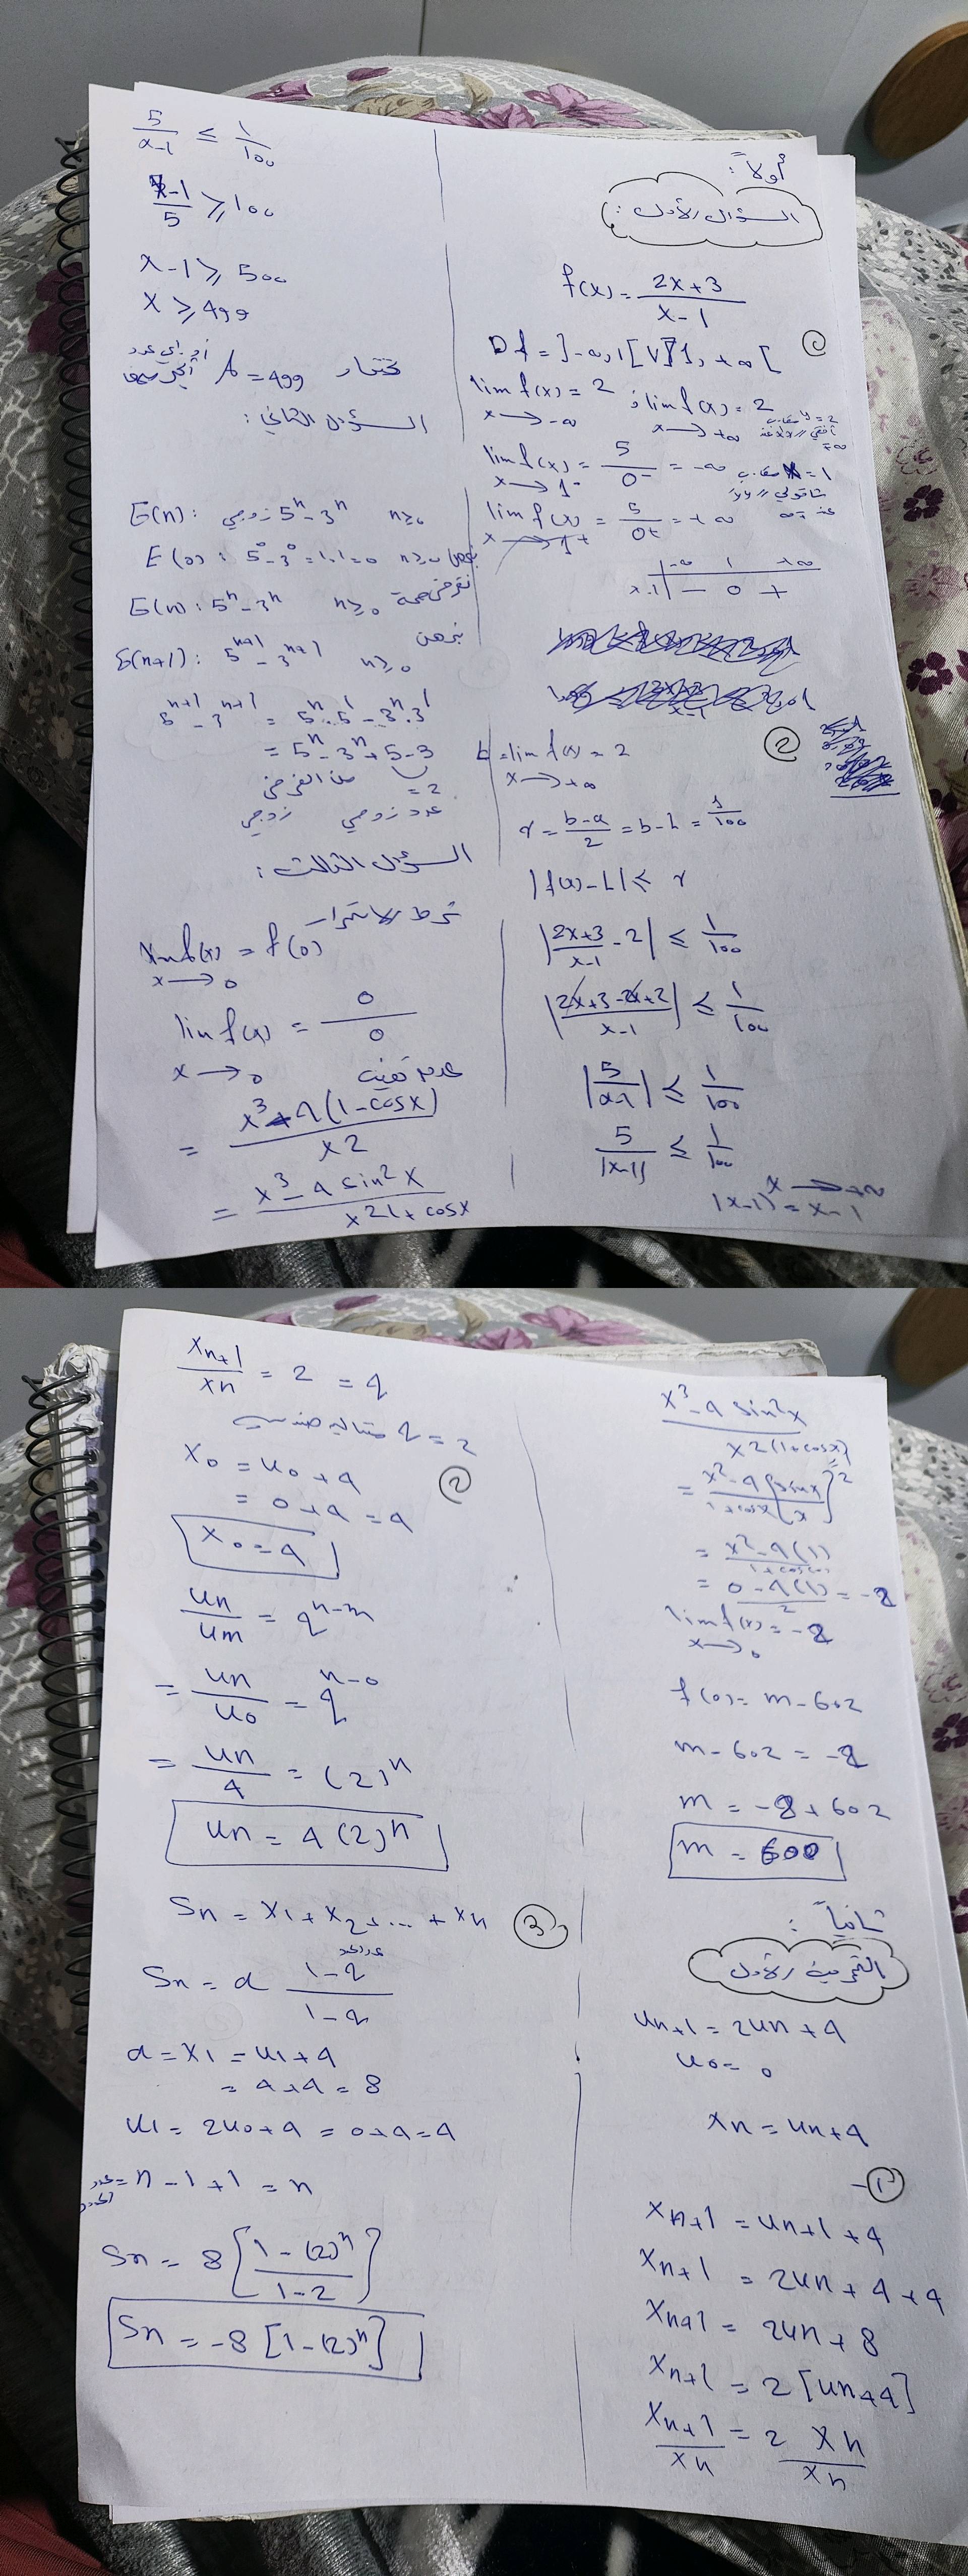 أولاً:
السؤال الأول:
f(x) = 2x+3 / x-1
①
Df = ]-∞, 1[ ∪ ]1, +∞[
lim f(x) = 2 ; lim f(x) = 2
x → -∞ x → +∞
y = 2 مقارب
أفقي // xx' عند
±∞
lim f(x) = 5 / 0- = -∞
x → 1-
x = 1 مقارب
شاقولي // yy'
lim f(x) = 5 / 0+ = +∞
x → 1+
-∞ 1 +∞
x-1 | - 0 +
②
L = lim f(x) = 2
x → +∞
r = b-a / 2 = b-L = 1 / 100
|f(x) - L| < r
|2x+3 / x-1 - 2| ≤ 1 / 100
|2x+3-2x+2 / x-1| ≤ 1 / 100
|5 / x-1| ≤ 1 / 100
5 / |x-1| ≤ 1 / 100
x → +∞
|x-1| = x-1
5 / x-1 ≤ 1 / 100
x-1 / 5 ≥ 100
x-1 ≥ 500
x ≥ 499
نختار A = 499 أو أي عدد
السؤال الثاني:
E(n): زوجي 5^n - 3^n n≥0
E(0): 5^0 - 3^0 = 1-1 = 0 n≥0
E(n): 5^n - 3^n n≥0 نفرض صحة
نبرهن
E(n+1): 5^n+1 - 3^n+1 n≥0
5^n+1 - 3^n+1 = 5^n . 5^1 - 3^n . 3^1
= 5^n - 3^n + 5 - 3
من الفرض = 2
زوجي عدد زوجي
السؤال الثالث:
شرط الاستمرار
lim f(x) = f(0)
x → 0
lim f(x) = 0 / 0
x → 0 عدم تعيين
= x³ - 4(1-cosx) / x2
= x³ - 4 sin²x / x21+cosx
x³ - 4 sin²x / x2(1+cosx)
= x² - 4 / 1+cosx (sinx / x)²
= x² - 4(1) / 1+cos(0)
= 0 - 4(1) / 2 = -2
lim f(x) = -2
x → 0
f(0) = m - 602
m - 602 = -2
m = -2 + 602
m = 600
ثانياً:
التمرين الأول
un+1 = 2un + 4
u0 = 0
xn = un + 4
① -
xn+1 = un+1 + 4
xn+1 = 2un + 4 + 4
xn+1 = 2un + 8
xn+1 = 2[un+4]
xn+1 / xn = 2 xn / xn
xn+1 / xn = 2 = q
متتالية هندسية q = 2
②
x0 = u0 + 4
= 0 + 4 = 4
x0 = 4
un / um = q^n-m
= un / u0 = q^n-0
= un / 4 = (2)^n
un = 4(2)^n
③
Sn = x1 + x2 + ... + xn
Sn = a 1-q^عدد الحدود / 1-q
a = x1 = u1 + 4
= 4 + 4 = 8
u1 = 2u0 + 4 = 0 + 4 = 4
عدد الحدود = n - 1 + 1 = n
Sn = 8 [1-(2)^n / 1-2]
Sn = -8 [1-(2)^n]